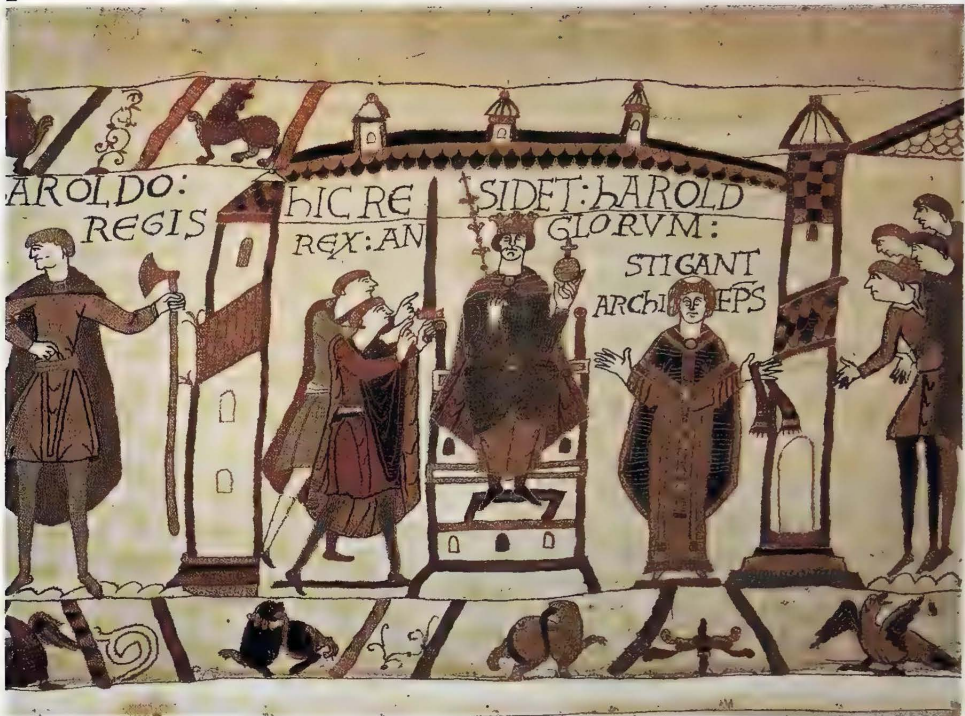 AROLDO:
REGIS
hIC RE SIDET: hAROLD
REX: AN GLORVM:
STIGANT
ARChI EPS